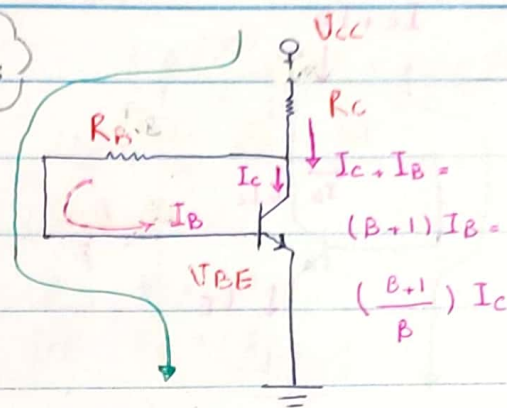 VCC
RC
RB
IC
IC + IB =
IB
(β+1) IB =
VBE
(β+1/β) IC